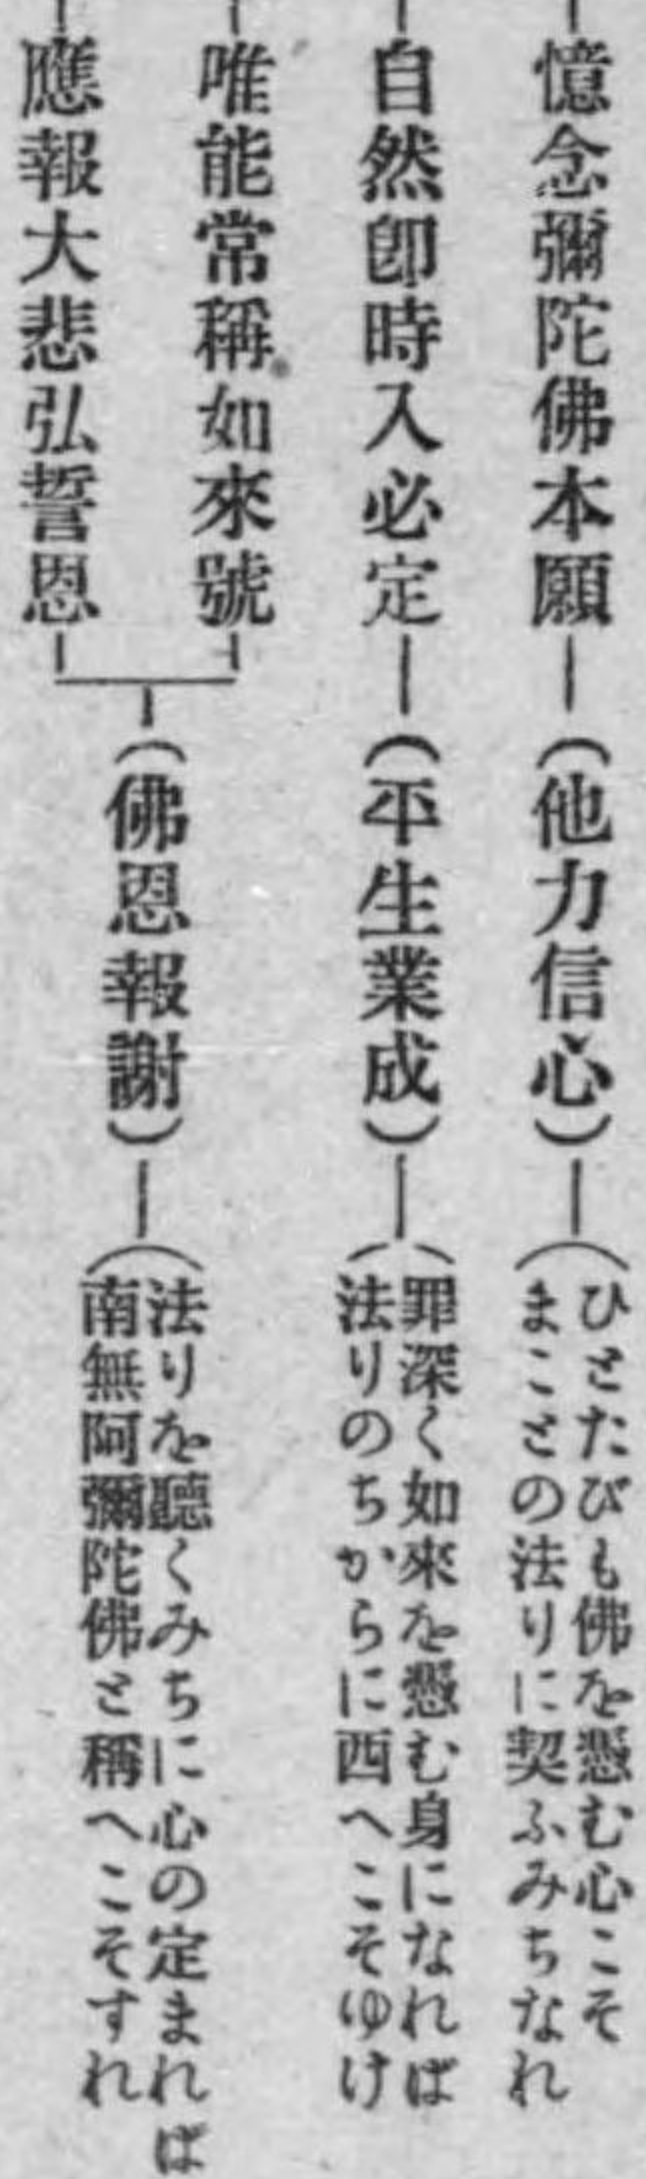 憶念彌陀佛本願
(他力信心)
ひとたびも佛を憑む心こそ
まことの法りに契ふみちなれ
自然卽時入必定
(平生業成)
罪深く如來を憑む身になれば
法りのちからに西へこそゆけ
唯能常稱如來號
應報大悲弘誓恩
(佛恩報謝)
法りを聽くみちに心の定まれば
南無阿彌陀佛と稱へこそすれ